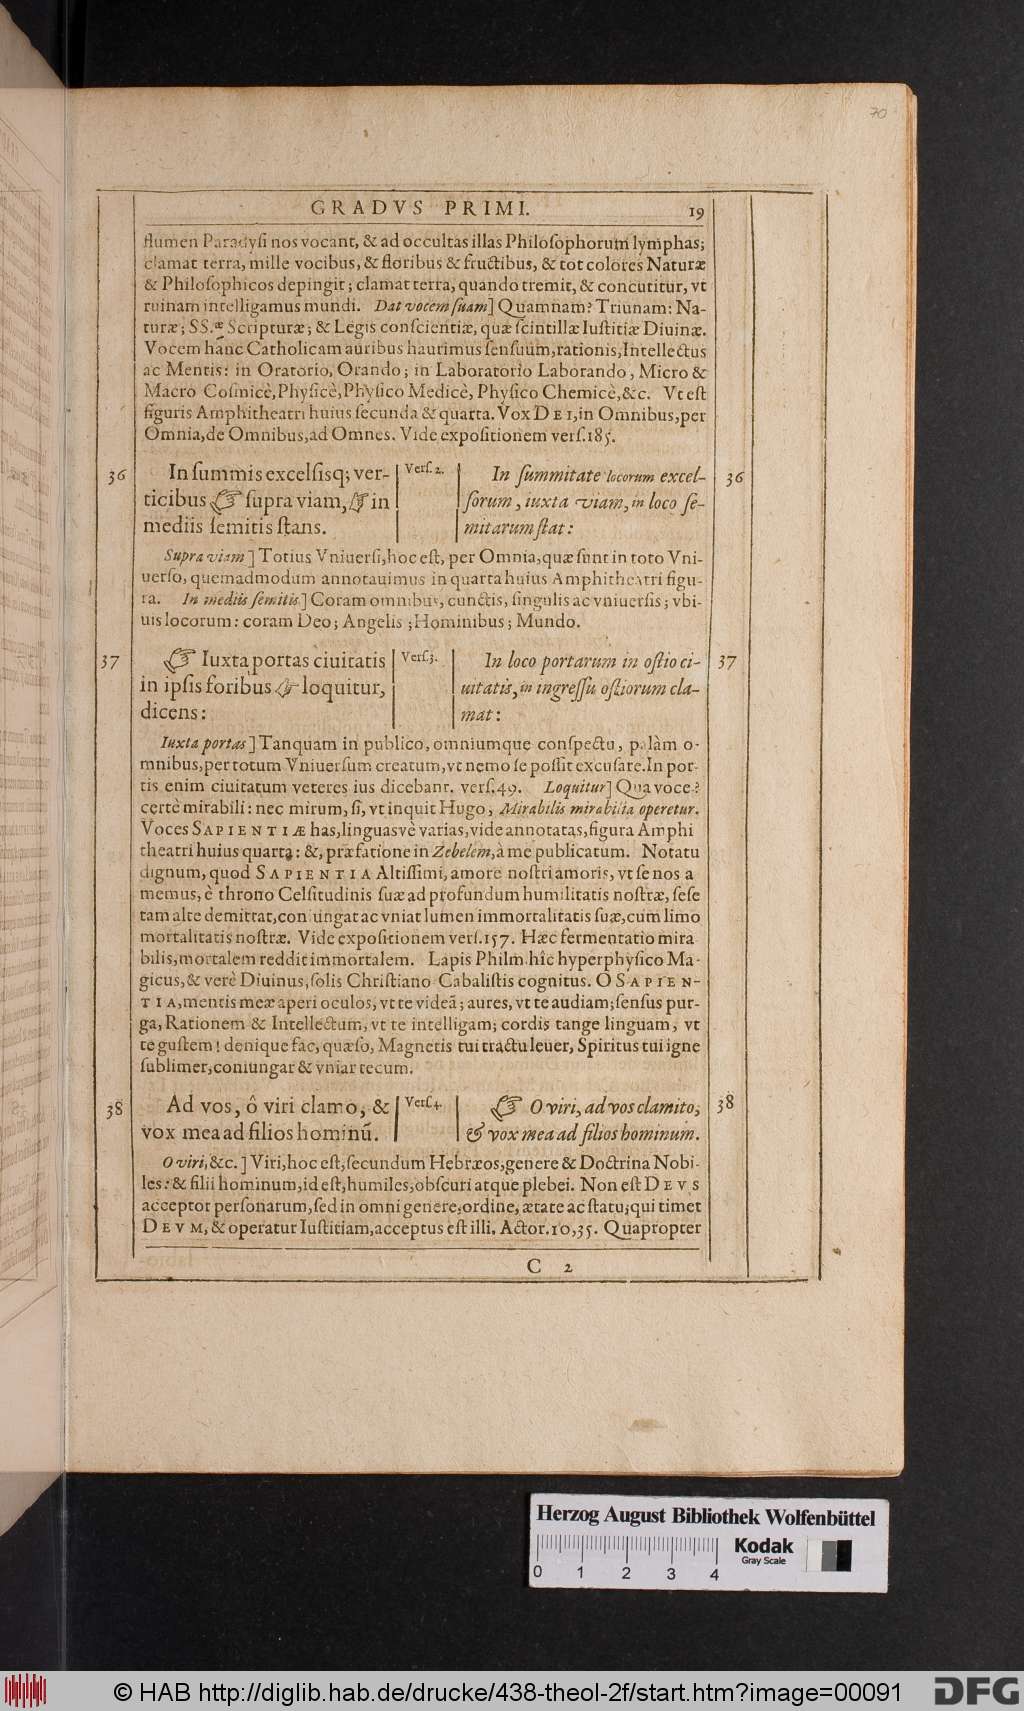 70
GRADVS PRIMI. 19
flumen Paradysi nos vocant, & ad occultas illas Philosophorum lymphas;
clamat terra, mille vocibus, & floribus & fructibus, & tot colores Naturæ
& Philosophicos depingit; clamat terra, quando tremit, & concutitur, vt
ruinam intelligamus mundi. Dat vocem suam] Quamnam? Triunam: Na-
turæ; SS.æ Scripturæ; & Legis conscientiæ, quæ scintillæ Iustitiæ Diuinæ.
Vocem hanc Catholicam auribus haurimus sensuum, rationis, Intellectus
ac Mentis: in Oratorio, Orando; in Laboratorio Laborando, Micro &
Macro Cosmicè, Physicè, Physico Medicè, Physico Chemicè, &c. Vt est
figuris Amphitheatri huius secunda & quarta. Vox DEI, in Omnibus, per
Omnia, de Omnibus, ad Omnes. Vide expositionem vers. 185.
36 In summis excelsisq; ver-
ticibus ☞ supra viam, ☞ in
mediis semitis stans.
Vers. 2.
In summitate locorum excel- 36
sorum, iuxta viam, in loco se-
mitarum stat:
Supra viam] Totius Vniuersi, hoc est, per Omnia, quæ sunt in toto Vni-
uerso, quemadmodum annotauimus in quarta huius Amphitheatri figu-
ra. In mediis semitis] Coram omnibus, cunctis, singulis ac vniuersis; vbi-
uis locorum: coram Deo; Angelis; Hominibus; Mundo.
37 ☞ Iuxta portas ciuitatis
in ipsis foribus ☞ loquitur,
dicens:
Vers. 3.
In loco portarum in ostio ci- 37
uitatis, in ingressu ostiorum cla-
mat:
Iuxta portas] Tanquam in publico, omniumque conspectu, palàm o-
mnibus, per totum Vniuersum creatum, vt nemo se possit excusare. In por-
tis enim ciuitatum veteres ius dicebant. vers. 49. Loquitur] Qua voce?
certè mirabili: nec mirum, si, vt inquit Hugo, Mirabilis mirabilia operetur.
Voces SAPIENTIÆ has, linguasvè varias, vide annotatas, figura Amphi
theatri huius quarta: &, præfatione in Zebelem, à me publicatum. Notatu
dignum, quod SAPIENTIA Altissimi, amore nostri amoris, vt se nos a
memus, è throno Celsitudinis suæ ad profundum humilitatis nostræ, sese
tam alte demittat, coniungat ac vniat lumen immortalitatis suæ, cum limo
mortalitatis nostræ. Vide expositionem vers. 157. Hæc fermentatio mira
bilis, mortalem reddit immortalem. Lapis Philm hîc hyperphysico Ma-
gicus, & verè Diuinus, solis Christiano Cabalistis cognitus. O SAPIEN-
TIA, mentis meæ aperi oculos, vt te videã; aures, vt te audiam; sensus pur-
ga, Rationem & Intellectum, vt te intelligam; cordis tange linguam, vt
te gustem! denique fac, quæso, Magnetis tui tractu leuer, Spiritus tui igne
sublimer, coniungar & vniar tecum.
38 Ad vos, ô viri clamo, &
vox mea ad filios hominũ.
Vers. 4.
☞ O viri, ad vos clamito, 38
& vox mea ad filios hominum.
O viri, &c.] Viri, hoc est, secundum Hebræos, genere & Doctrina Nobi-
les: & filii hominum, id est, humiles, obscuri atque plebei. Non est DEVS
acceptor personarum, sed in omni genere, ordine, ætate ac statu; qui timet
DEVM, & operatur Iustitiam, acceptus est illi, Actor. 10, 35. Quapropter
C 2
Herzog August Bibliothek Wolfenbüttel
0 1 2 3 4
Kodak
Gray Scale
© HAB http://diglib.hab.de/drucke/438-theol-2f/start.htm?image=00091
DFG